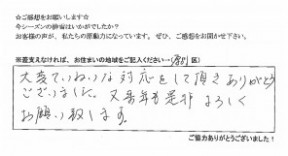 ☆ご感想をお願いします☆
今シーズンの除雪はいかがでしたか?
お客様の声が、私たちの原動力になっています。ぜひ、ご感想をお聞かせ下さい。
※差支えなければ、お住まいの地域をご記入ください→( 区)
大変ていねいな対応をして頂きありがとう
ございました。又来年も是非よろしく
お願い致します。
ご協力ありがとうございました!